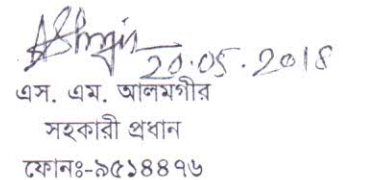 20.05.2018
এস. এম. আলমগীর
সহকারী প্রধান
ফোনঃ-৯৫১৪৪৭৬